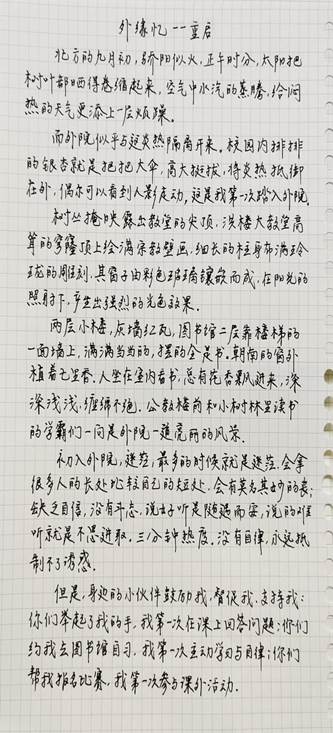 外缘忆--重启
北方的九月初，骄阳似火，正午时分，太阳把
树叶都晒得卷缩起来，空气中水汽的蒸腾，给闷
热的天气更添上一层烦躁。
而外院似乎与这炎热隔离开来。校园内排排
的银杏就是把把大伞，高大挺拔，将炎热抵御
在外，偶尔可以看到人影走动，这是我第一次踏入外院。
树丛掩映露出教堂的尖顶，洗楼大教堂高
耸的穹窿顶上绘满宗教壁画，细长的柱身布满玲
珑的雕刻，其窗子由彩色玻璃镶嵌而成，在阳光的
照射下，产生出强烈的光色效果。
两层小楼，灰墙红瓦，图书馆二层靠楼梯的
一面墙上，满满当当的，摆的全是书。朝南的窗外
植着七里香。人坐在室内看书，总有花香飘进来，深
深浅浅，缠绵不绝。公教楼前和小树林里读书
的学霸们一向是外院一道亮丽的风景。
初入外院，迷茫，最多的时候就是迷茫。会拿
很多人的长处比较自己的短处，会有莫名其妙的丧；
缺乏自信，没有斗志，说好听是随遇而安，说的难
听就是不思进取。三分钟热度。没有自律，永远抵
制不了诱惑。
但是，身边的小伙伴鼓励我，督促我，支持我：
你们举起了我的手，我第一次在课上回答问题；你们
约我去图书馆自习，我第一次主动学习与自律；你们
帮我报名比赛，我第一次参与课外活动。